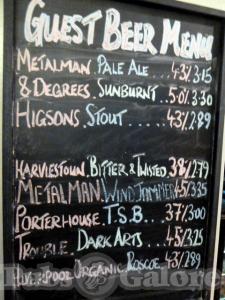 GUEST BEER MENU
METALMAN PALE ALE... 4.3%/3.15
8 DEGREES SUNBURNT.. 5.0%/3.30
HIGSONS STOUT.... 4.3%/2.89
HARVIESTOUN. BITTER & TWISTED 3.8%/2.79
METALMAN WINDJAMMER 4.5%/3.35
PORTERHOUSE T.S.B... 3.7%/3.00
TROUBLE DARK ARTS... 4.5%/3.25
LIVERPOOL ORGANIC ROSCOE. 4.3%/2.89